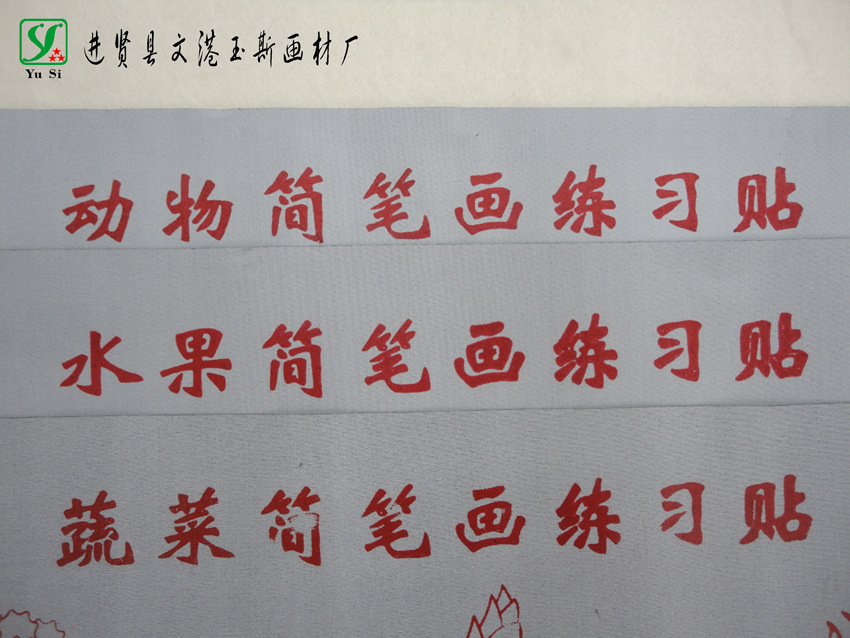 进贤县文港玉斯画材厂
Yu Si
动物简笔画练习贴
水果简笔画练习贴
蔬菜简笔画练习贴